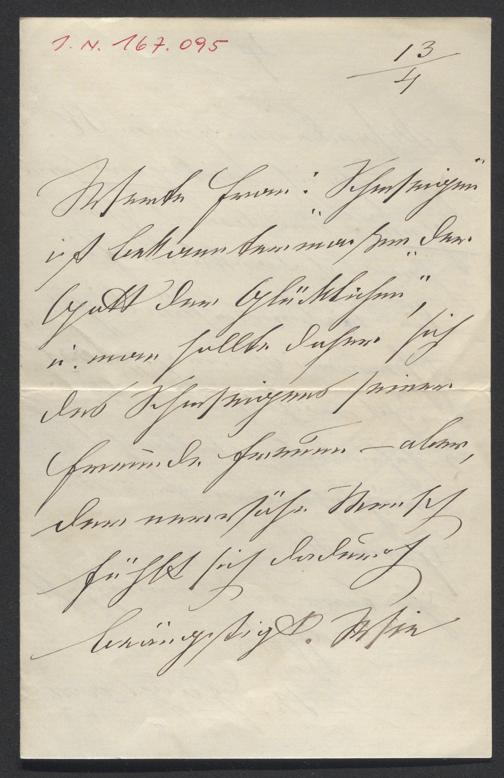 I. N. 167.095
13/4
Werthe Frau! Schweigen
ist bekanntermaßen "der
Gott der Glücklichen",
u. man sollte daher sich
des Schweigens seiner
Freunde freuen – aber,
der nervöse Mensch
fühlt sich dadurch
beängstigt. Wie